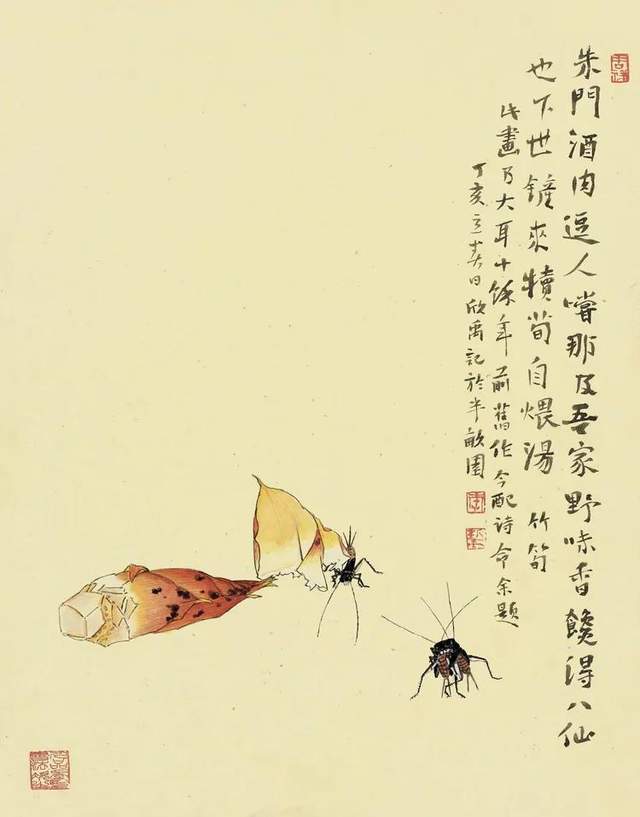 朱門酒肉逗人嚐那及吾家野味香饞得八仙
也下世鏟來犢筍自煨湯 竹筍
此畫乃大耳十餘年前舊作今配詩命余題
丁亥立春日欣禹記於半畝園